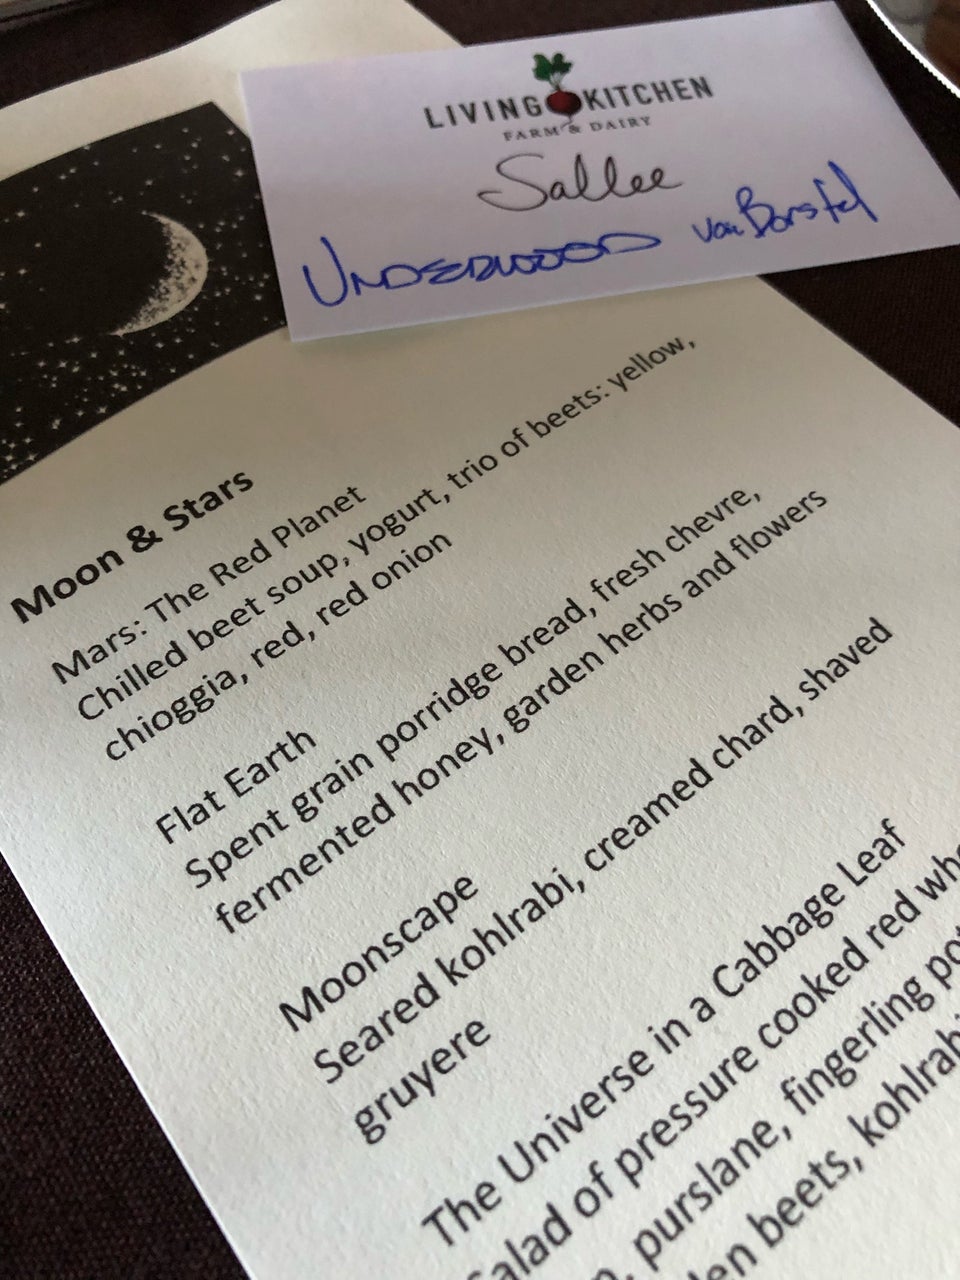 LIVING KITCHEN
FARM & DAIRY
Sallee
UNDERWOOD von Borstel
Moon & Stars
Mars: The Red Planet
Chilled beet soup, yogurt, trio of beets: yellow,
chioggia, red, red onion
Flat Earth
Spent grain porridge bread, fresh chevre,
fermented honey, garden herbs and flowers
Moonscape
Seared kohlrabi, creamed chard, shaved
gruyere
The Universe in a Cabbage Leaf
Salad of pressure cooked red
purslane, fingerling
beets,